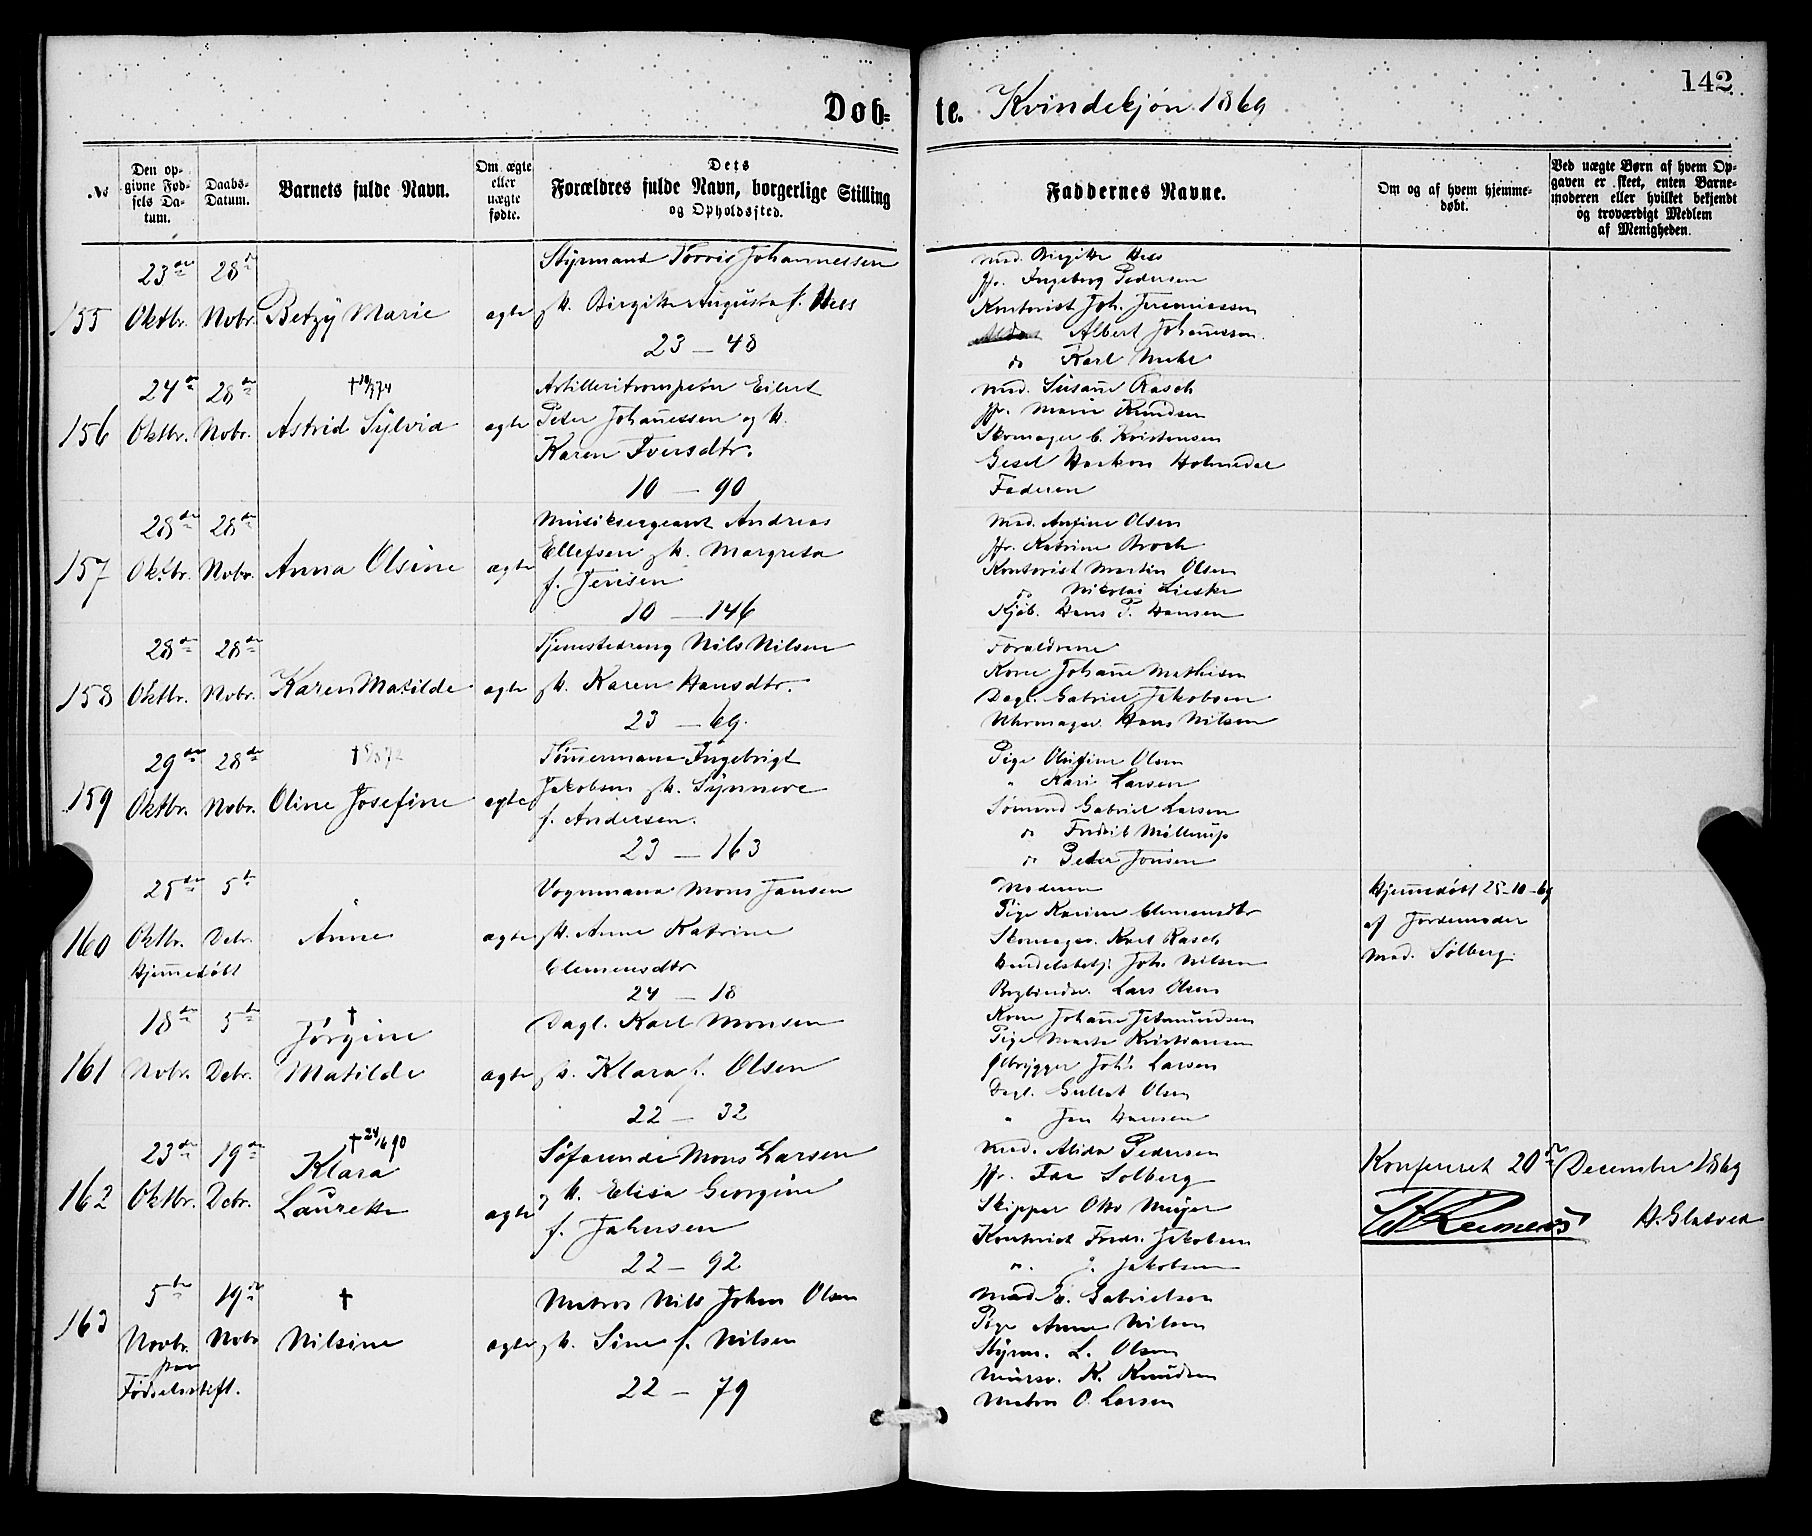 142
Døb= te. Kvindekjøn 1869
№
Den op-
givne Fød-
sels Da-
tum.
Daabs-
Datum.
Barnets fulde Navn.
Om ægte
eller
uægte
fødte.
Dets
Forældres fulde Navn, borgerlige Stilling
og Opholdssted.
Faddernes Navne.
Om og af hvem hjemme-
døbt.
Ved uægte Børn af hvem Op-
gaven er skeet, enten Barne-
moderen eller hvilket bekjendt
og troværdigt Medlem
af Menigheden.
155
23de Oktbr.
28de Novbr.
Betzy Marie
ægte
Styrmand Johannessen
H. Birgitte Augusta f. Hess
23 — 48
Mad. Birgitte Hess
Jfr. Ingeborg Pedersen
Kontorist Joh. Jeremiassen
Albert Johannessen
do Karl
156
24de Oktbr.
28de Novbr.
Astrid Sylvia
ægte
Artilleritrompeter Eilert
Peder Johannessen og H.
Karen Iversdtr.
10 — 90
Mad. Susanne Rasch
Jfr. Marie Knudsen
Skomager C. Kristensen
Gesel Haakon Holmedal
Faderen
157
28de Oktbr.
28de Novbr.
Anna Olsine
ægte
Musiksergeant Andreas
Ellefsen og H. Margreta
f. Jensen
10 — 146
Mad. Olsen
Jfr. Katrine Broch
Kontorist Martin Olsen
do Nikolai
Kjøb. Hans P. Hansen
158
28de Oktbr.
28de Novbr.
Karen Matilde
ægte
Tjenestedreng Nils Nilsen
H. Karen Hansdtr.
23 — 69.
Forældrene
Kone Johanne Mathisen
Dagl. Gabriel Jakobsen
Uhrmager Hans Nilsen
159
29de Oktbr.
28de Novbr.
Oline Josefine
ægte
Tømmermand Ingebrigt
Jakobsen og H. Synneve
f. Andersen.
23 — 163
Pige Olsen
" Kari Larsen
Sømand Gabriel Larsen
do Fredrik Møllerup
do Peder Jonsen
160
25de Oktbr.
5te Debr.
Hjemmedøbt
Anne
ægte
Vognmand Mons Jansen
H. Anne Katrine
Clemensdtr
24 — 18
Moderen
Pige Karine Clemensdtr
Skomager Karl Rasch
Handelsbetj. Joh. Nilsen
Bogbinder Lars Olsen
Hjemmedøbt 25-10-69
af Jordemoder
Mad. Sølberg.
161
18de Novbr.
5te Debr.
†
Jørgine
Matilde
ægte
Dagl. Karl Monsen
H. Klara f. Olsen
22 — 32
Kone Johanne
Pige Marta Kristiansen
Ølbrygger Joh. Larsen
Dagl. Olsen
" Jan Hansen
162
23de Oktbr.
19de Debr.
† 24/6 90
Klara
Laurette
ægte
Søfarende Mons Larsen
og H. Elisa Georgine
f. Jakobsen
22 — 92
Mad. Alida Pedersen
Jfr. Solberg
Skipper Otto Meyer
Kontorist Fredr. Jakobsen
" J. Jakobsen
Konfereret 20de December 1869
163
5te Novbr.
19de Novbr
Fødselsstift.
†
Nilsine
ægte
Matros Nils Johan Olsen
H. Sine f. Nilsen
22 — 79
Mad. Gabrielsen
Pige Anne Nilsen
Styrm. L. Olsen
Mursv. K. Knudsen
Matros O. Larsen